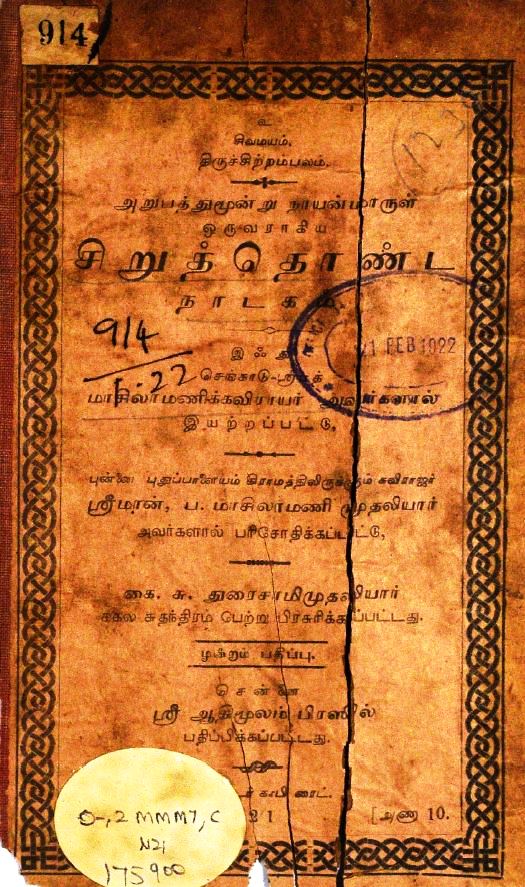 914
உ
சிவமயம்.
திருச்சிற்றம்பலம்.
அறுபத்துமூன்று நாயன்மாருள்
ஒருவராகிய
சிறுத்தொண்ட
நாடகம்
914
1-22
21 FEB 1922
இஃது
செங்காடு-ஸ்ரீமத்
மாசிலாமணிக்கவிராயர் அவர்களால்
இயற்றப்பட்டு,
புன்னை புதுப்பாளையம் கிராமத்திலிருக்கும் கவிராஜர்
ஸ்ரீமான், ப. மாசிலாமணி முதலியார்
அவர்களால் பரிசோதிக்கப்பட்டு,
கை. சு. துரைசாமிமுதலியார்
சகல சுதந்திரம் பெற்று பிரசுரிக்கப்பட்டது.
மூன்றும் பதிப்பு.
சென்னை
ஸ்ரீ ஆதிமூலம் பிரஸில்
பதிப்பிக்கப்பட்டது.
காபி ரைட்.
21 [அணு 10.
O-,2 MMM7, C
N21
175900